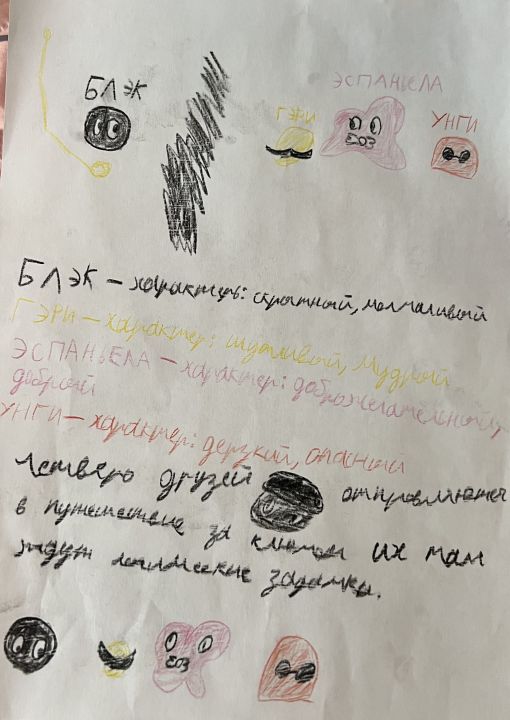 БЛЭК
ЭСПАНИЕЛА
ГЭРИ
УНГИ
БЛЭК – характер: скрытный, молчаливый
ГЭРИ – характер: шутливый, мудрый
ЭСПАНЬЕЛА – характер: доброжелательный,
добрый
УНГИ – характер: дерзкий, опасный
Четверо друзей отправляются
в путешествие за ключом их там
ждут логические задачки.